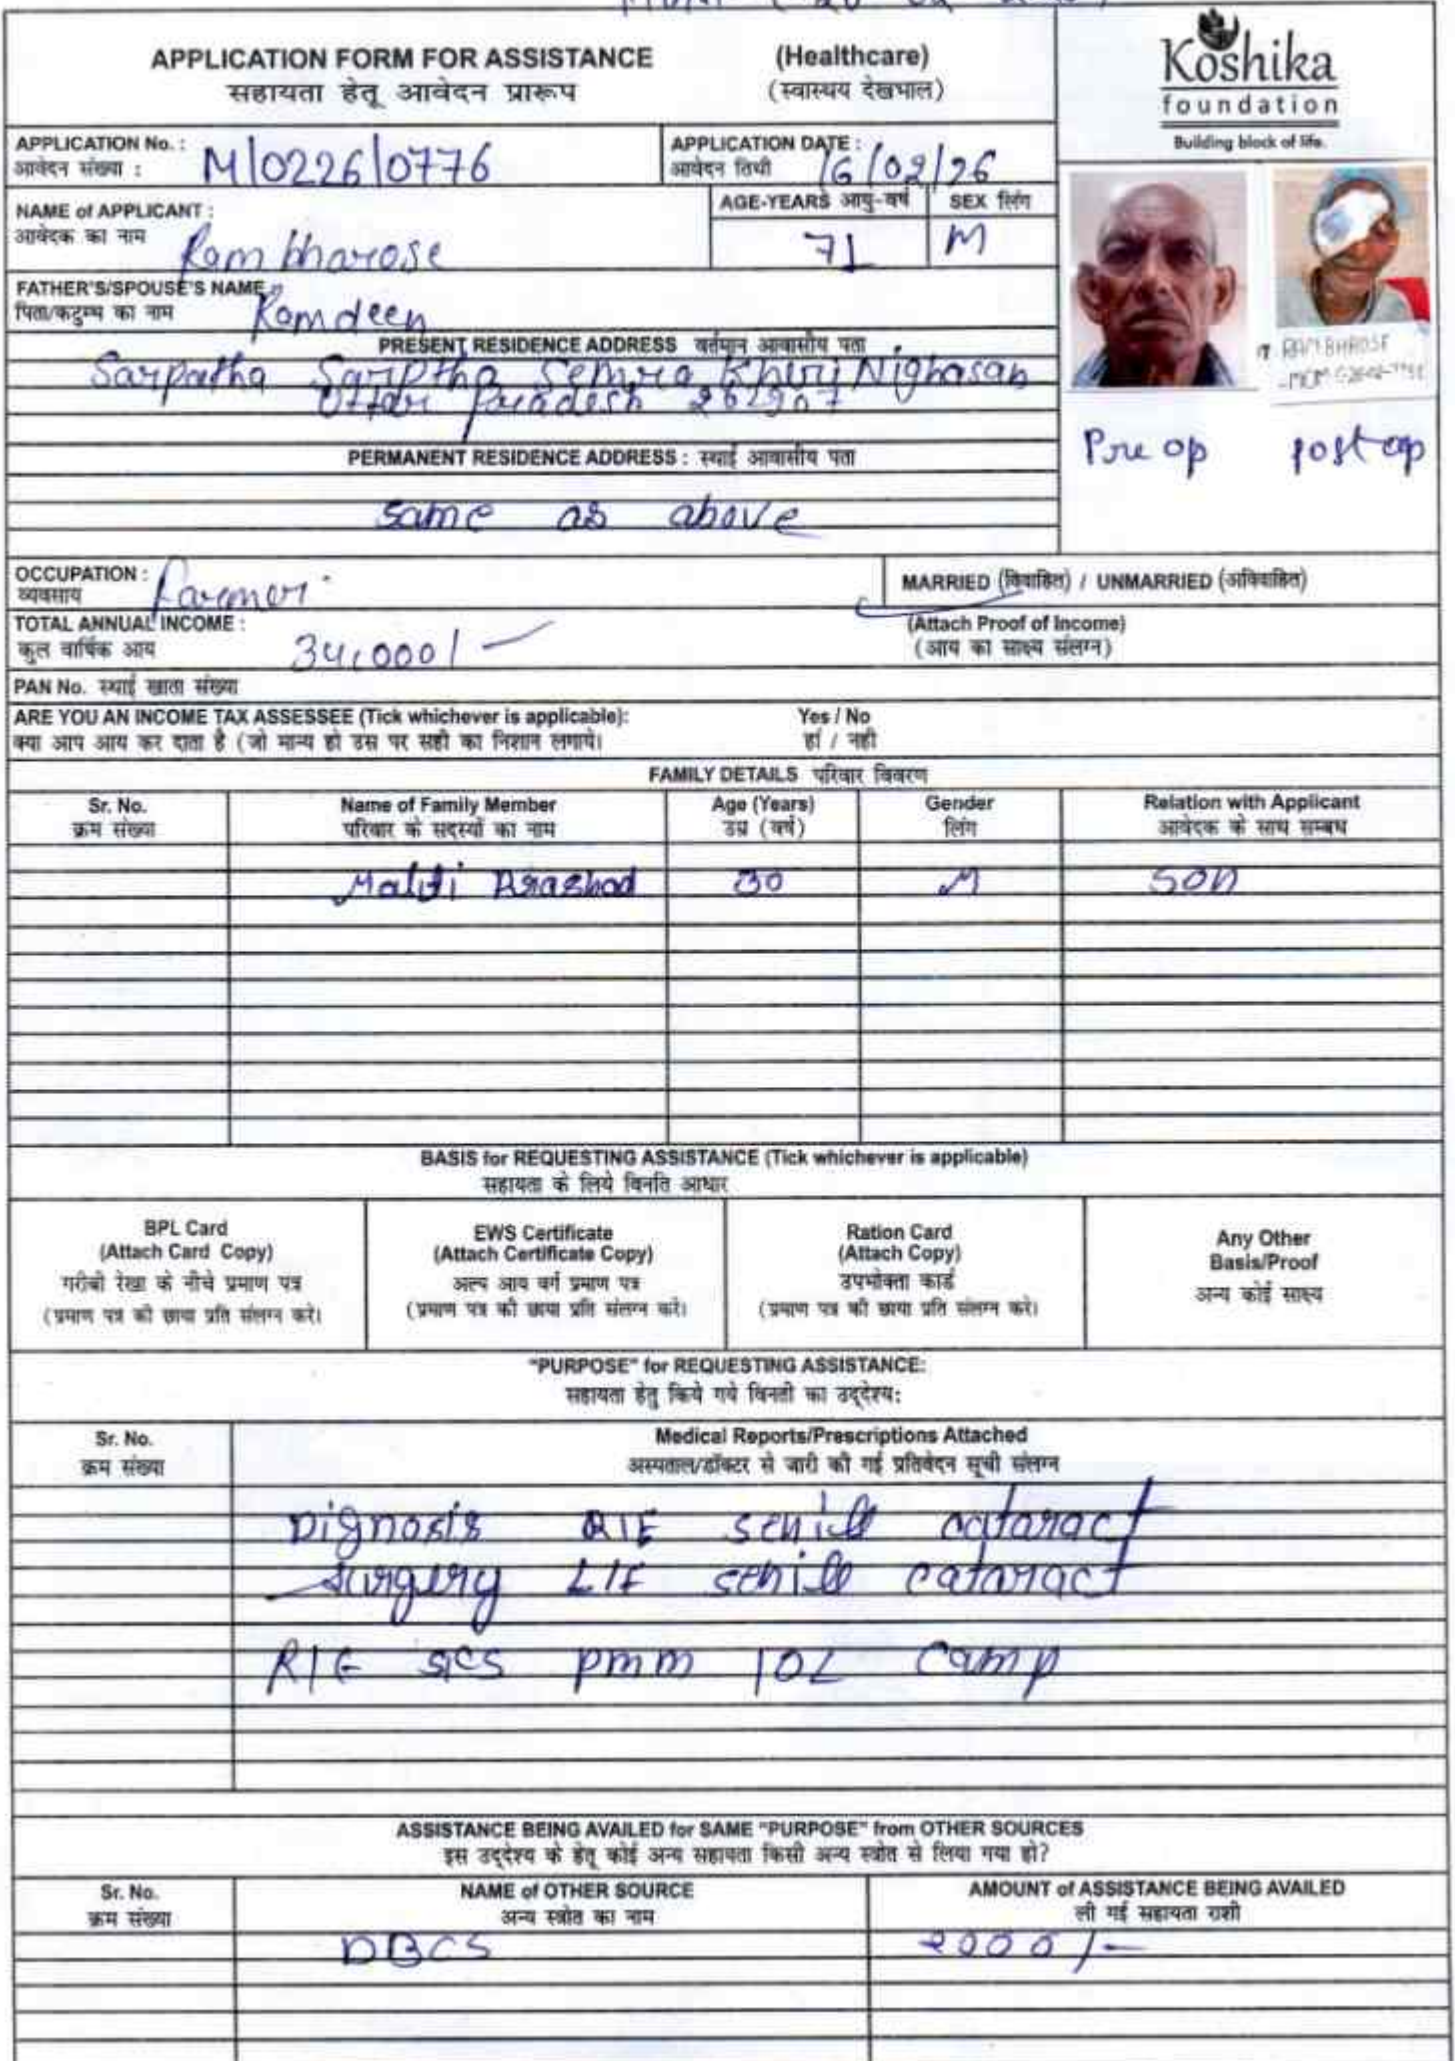 APPLICATION FORM FOR ASSISTANCE (Healthcare)
सहायता हेतू आवेदन प्रारूप (स्वास्थय देखभाल)
Koshika
foundation
Building block of life.
APPLICATION No. : M/0226/0776
आवेदन संख्या :
APPLICATION DATE : 16/02/26
आवेदन तिथी
NAME of APPLICANT : Ram bharose
आवेदक का नाम
AGE-YEARS आयु-वर्ष 71
SEX लिंग M
FATHER'S/SPOUSE'S NAME : Ramdeen
पिता/कटुम्ब का नाम
PRESENT RESIDENCE ADDRESS वर्तमान आवासीय पता
Sarpatha Sarptha Semra Kheri Nighasan
Uttar Pradesh 262907
RAM BHROSE
Pre op post op
PERMANENT RESIDENCE ADDRESS : स्थाई आवासीय पता
same as above
OCCUPATION : Farmer
व्यवसाय
MARRIED (विवाहित) / UNMARRIED (अविवाहित)
TOTAL ANNUAL INCOME : 34,000/-
कुल वार्षिक आय
(Attach Proof of Income)
(आय का साक्ष्य संलग्न)
PAN No. स्थाई खाता संख्या
ARE YOU AN INCOME TAX ASSESSEE (Tick whichever is applicable): Yes / No
क्या आप आय कर दाता है (जो मान्य हो उस पर सही का निशान लगाये। हां / नही
FAMILY DETAILS परिवार विवरण
Sr. No. Name of Family Member Age (Years) Gender Relation with Applicant
क्रम संख्या परिवार के सदस्यों का नाम उम्र (वर्ष) लिंग आवेदक के साथ सम्बध
30 M son
BASIS for REQUESTING ASSISTANCE (Tick whichever is applicable)
सहायता के लिये विनति आधार
BPL Card
(Attach Card Copy)
गरीबी रेखा के नीचे प्रमाण पत्र
(प्रमाण पत्र की छाया प्रति संलग्न करे।
EWS Certificate
(Attach Certificate Copy)
अल्प आय वर्ग प्रमाण पत्र
(प्रमाण पत्र की छाया प्रति संलग्न करे।
Ration Card
(Attach Copy)
उपभोक्ता कार्ड
(प्रमाण पत्र की छाया प्रति संलग्न करे।
Any Other
Basis/Proof
अन्य कोई साक्ष्य
"PURPOSE" for REQUESTING ASSISTANCE:
सहायता हेतु किये गये विनती का उद्देश्य:
Sr. No. Medical Reports/Prescriptions Attached
क्रम संख्या अस्पताल/डॉक्टर से जारी की गई प्रतिवेदन सूची संलग्न
Dignosis R/E senile cataract
surgery L/E senile cataract
R/E SICS PMM IOL Camp
ASSISTANCE BEING AVAILED for SAME "PURPOSE" from OTHER SOURCES
इस उद्देश्य के हेतू कोई अन्य सहायता किसी अन्य स्त्रोत से लिया गया हो?
Sr. No. NAME of OTHER SOURCE AMOUNT of ASSISTANCE BEING AVAILED
क्रम संख्या अन्य स्त्रोत का नाम ली गई सहायता राशी
DBCS 2000/-